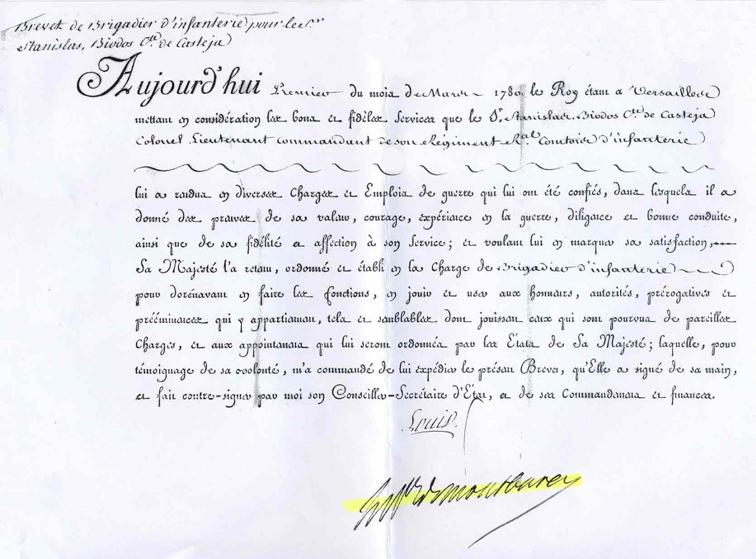 Brevet de Brigadier d'infanterie pour le Sr.
Stanislas, Biodos Cte. de Casteja
Aujourd'hui Premier du mois de Mars 1780 le Roy étant a Versailles
mettant en considération les bons et fidéles Services que le Sr. Stanislas Biodos Cte. de Casteja
Colonel Lieutenant commandant de son Régiment Ral. Comtois d'infanterie
lui a rendus en diverses Charges et Emplois de guerre qui lui ont été confiés, dans lesquels il a
donné des preuves de sa valeur, courage, expérience en la guerre, diligence et bonne conduite,
ainsi que de sa fidélité et affection à son Service; et voulant lui en marquer sa satisfaction,
Sa Majesté l'a retenu, ordonné et établi en la Charge de Brigadier d'infanterie
pour dorénavant en faire les fonctions, en jouir et user aux honneurs, autorités, prérogatives et
prééminences qui y appartiennent, tels et semblables dont jouissent ceux qui sont pourvus de pareilles
Charges, et aux appointemens qui lui seront ordonnés par les Etats de Sa Majesté; laquelle, pour
témoignage de sa volonté, m'a commandé de lui expédier le présent Brevet, qu'Elle a signé de sa main,
et fait contre-signer par moi son Conseiller-Secrétaire d'Etat, et de ses Commandemens et finances.
Louis
montbarey